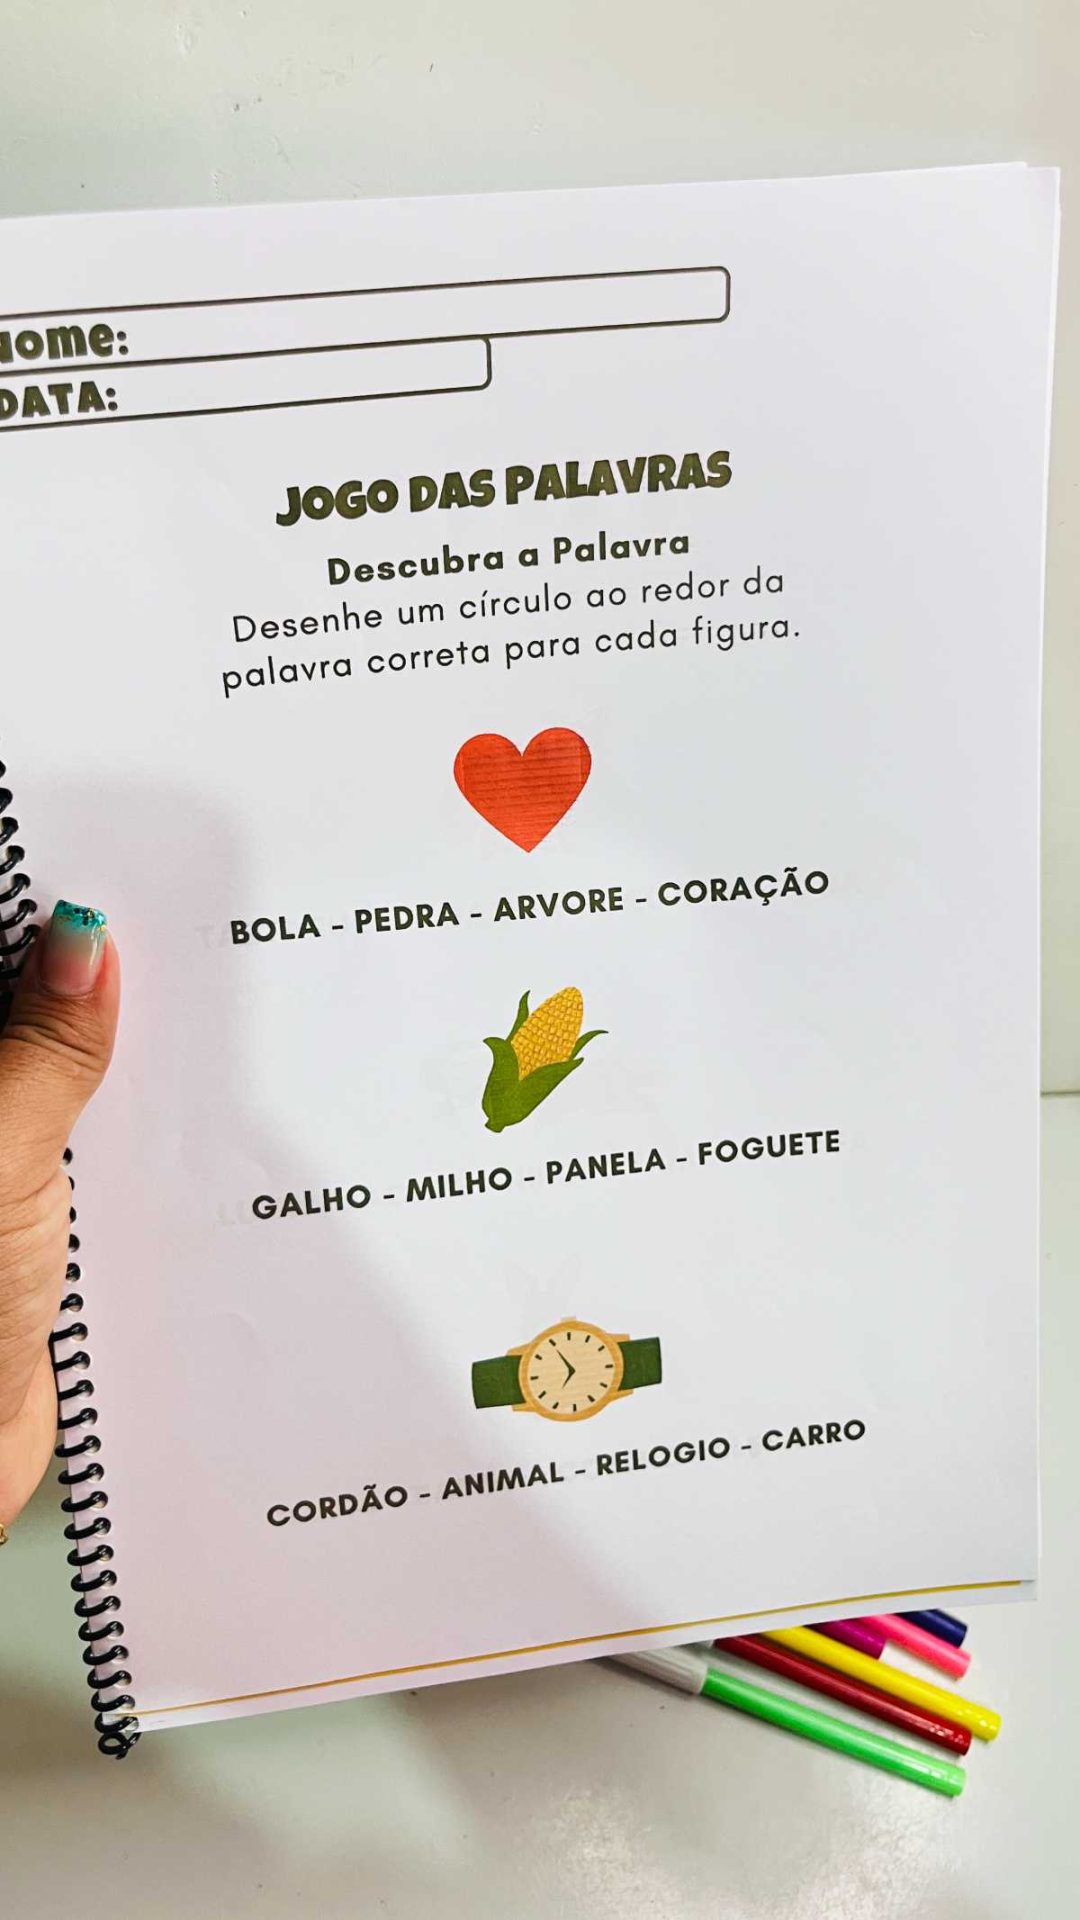 Nome:
DATA:
JOGO DAS PALAVRAS
Descubra a Palavra
Desenhe um círculo ao redor da
palavra correta para cada figura.
BOLA - PEDRA - ARVORE - CORAÇÃO
GALHO - MILHO - PANELA - FOGUETE
CORDÃO - ANIMAL - RELOGIO - CARRO